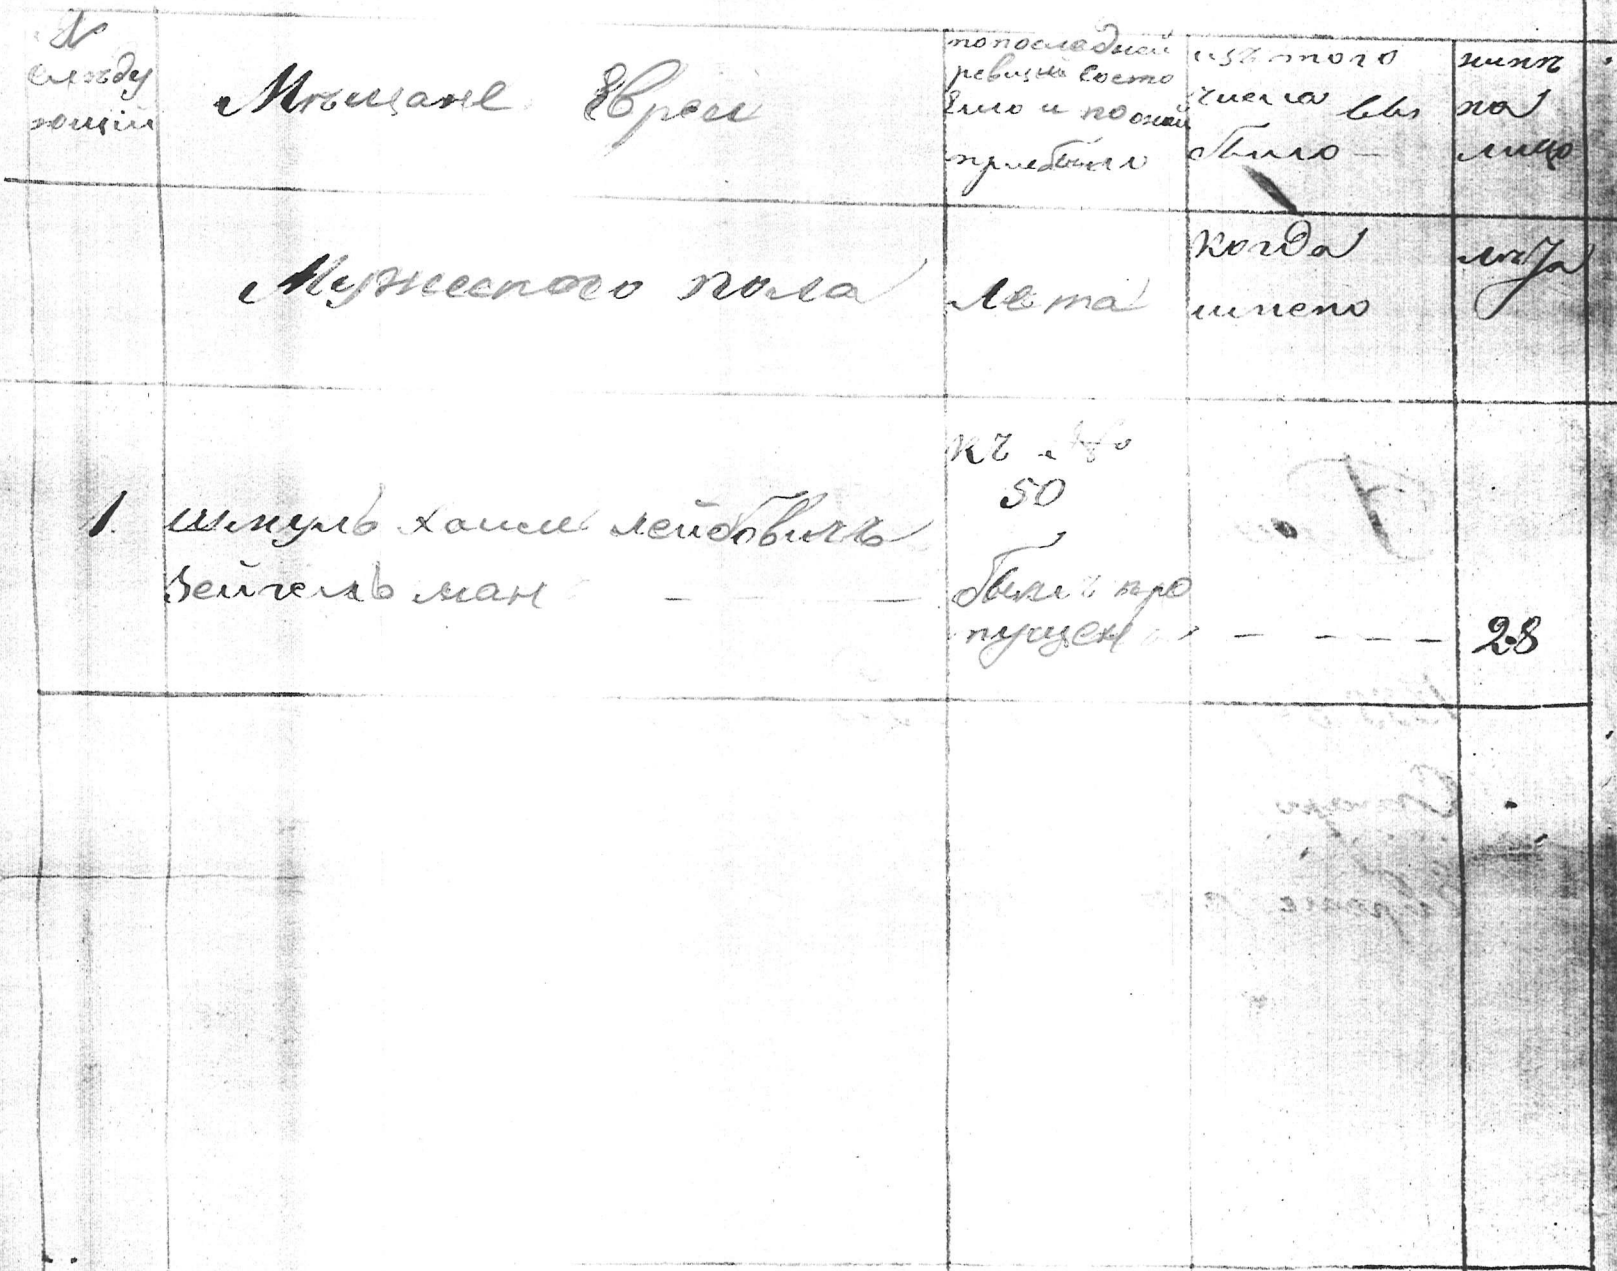 N
слѣду
ющій
Мѣщане Евреи
по последней
ревизіи состо
ело и по оной
прибыло
изъ того
числа вы
было —
нынѣ
на
лицо
Мужеского пола
Лета
когда
имено
лѣта
1. Шмуль хаим лейбовичъ
Зейгельман — —
50
былъ про
пущен — — — —
28